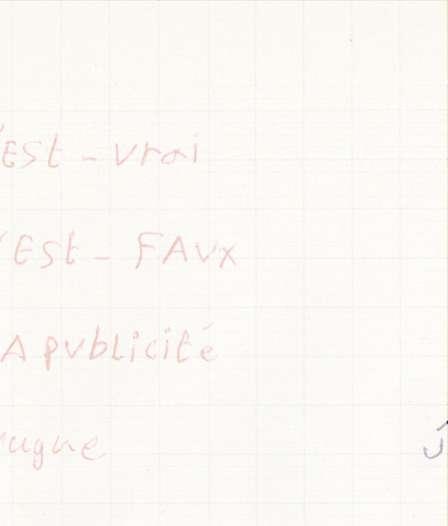 'ESt - vrai
'ESt - FAUx
A publicité